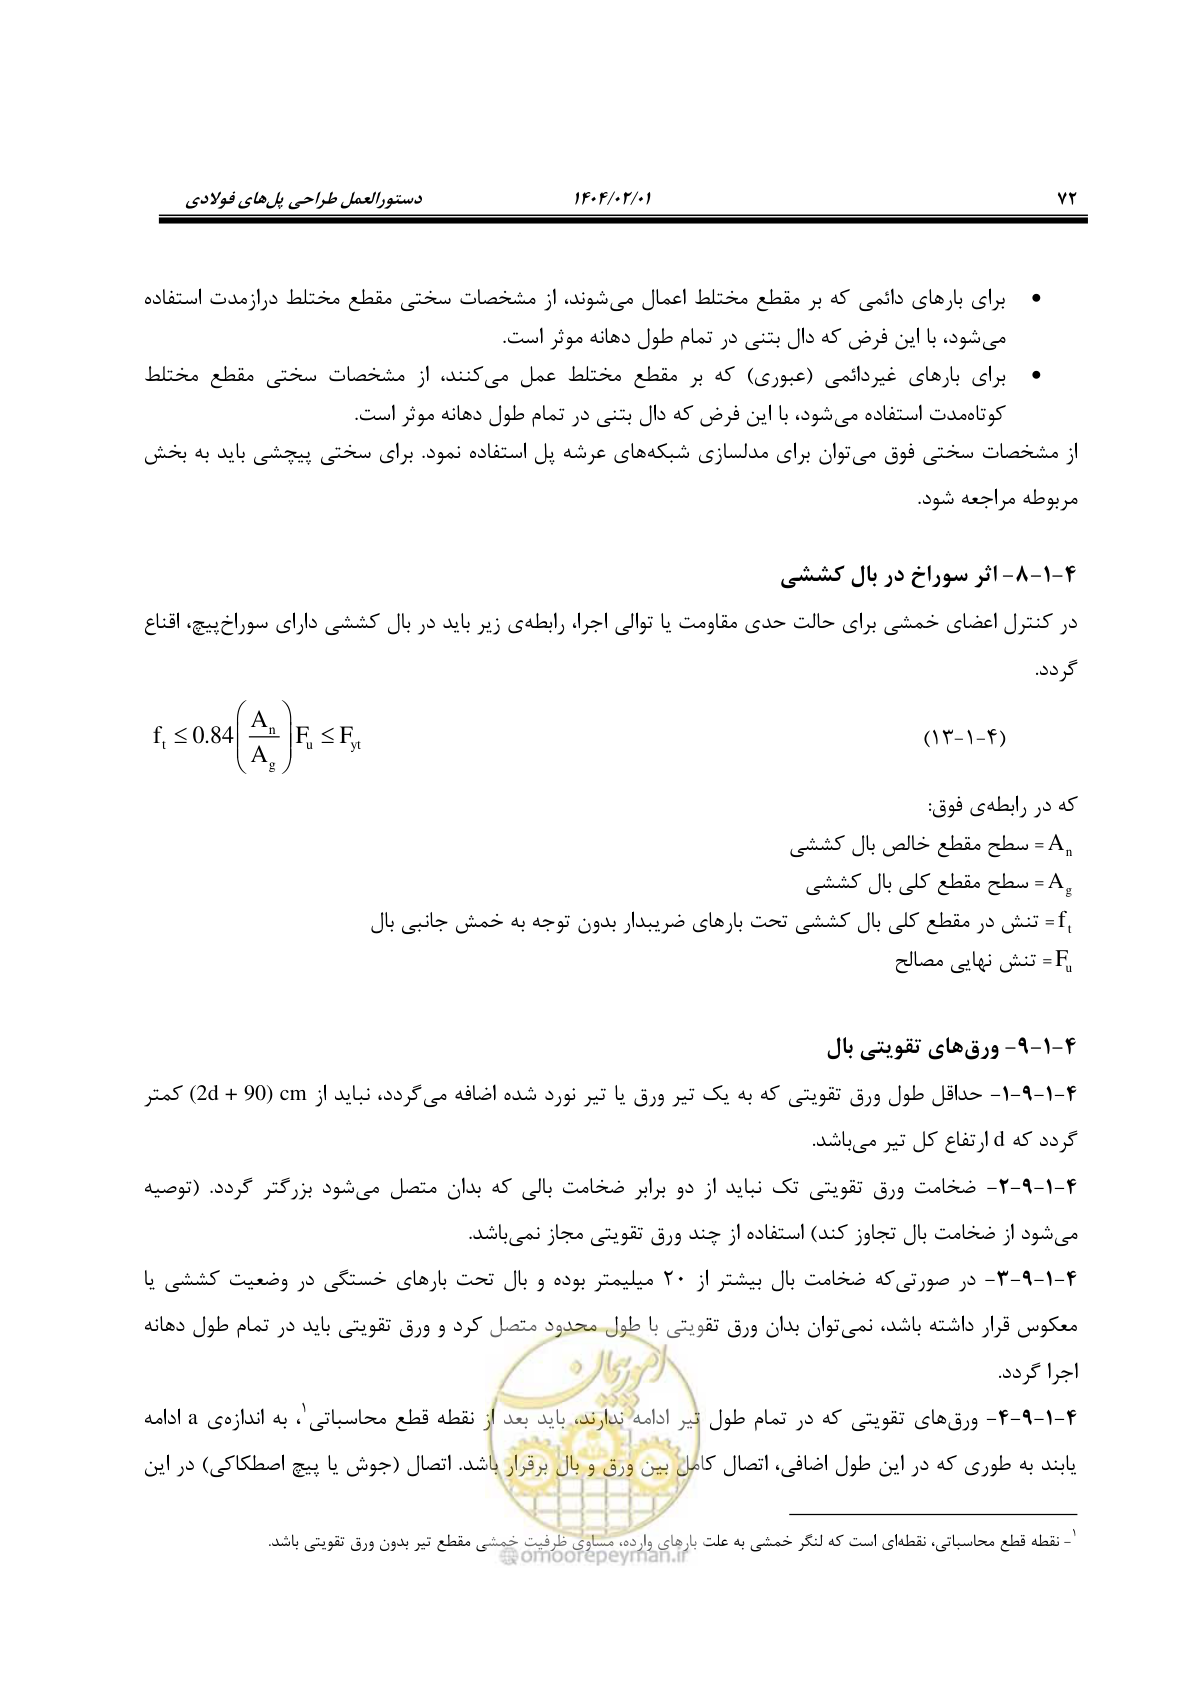 ۷۲ ۱۴۰۴/۰۲/۰۱ دستورالعمل طراحی پل‌های فولادی
• برای بارهای دائمی که بر مقطع مختلط اعمال می‌شوند، از مشخصات سختی مقطع مختلط درازمدت استفاده
می‌شود، با این فرض که دال بتنی در تمام طول دهانه موثر است.
• برای بارهای غیردائمی (عبوری) که بر مقطع مختلط عمل می‌کنند، از مشخصات سختی مقطع مختلط
کوتاه‌مدت استفاده می‌شود، با این فرض که دال بتنی در تمام طول دهانه موثر است.
از مشخصات سختی فوق می‌توان برای مدلسازی شبکه‌های عرشه پل استفاده نمود. برای سختی پیچشی باید به بخش
مربوطه مراجعه شود.
۴-۱-۸- اثر سوراخ در بال کششی
در کنترل اعضای خمشی برای حالت حدی مقاومت یا توالی اجرا، رابطه‌ی زیر باید در بال کششی دارای سوراخ‌پیچ، اقناع
گردد.
(۴-۱-۱۳) f_t ≤ 0.84 (A_n / A_g) F_u ≤ F_yt
که در رابطه‌ی فوق:
A_n = سطح مقطع خالص بال کششی
A_g = سطح مقطع کلی بال کششی
f_t = تنش در مقطع کلی بال کششی تحت بارهای ضریبدار بدون توجه به خمش جانبی بال
F_u = تنش نهایی مصالح
۴-۱-۹- ورق‌های تقویتی بال
۴-۱-۹-۱- حداقل طول ورق تقویتی که به یک تیر ورق یا تیر نورد شده اضافه می‌گردد، نباید از (2d + 90) cm کمتر
گردد که d ارتفاع کل تیر می‌باشد.
۴-۱-۹-۲- ضخامت ورق تقویتی تک نباید از دو برابر ضخامت بالی که بدان متصل می‌شود بزرگتر گردد. (توصیه
می‌شود از ضخامت بال تجاوز کند) استفاده از چند ورق تقویتی مجاز نمی‌باشد.
۴-۱-۹-۳- در صورتی‌که ضخامت بال بیشتر از ۲۰ میلیمتر بوده و بال تحت بارهای خستگی در وضعیت کششی یا
معکوس قرار داشته باشد، نمی‌توان بدان ورق تقویتی با طول محدود متصل کرد و ورق تقویتی باید در تمام طول دهانه
اجرا گردد.
۴-۱-۹-۴- ورق‌های تقویتی که در تمام طول تیر ادامه ندارند، باید بعد از نقطه قطع محاسباتی۱، به اندازه‌ی a ادامه
یابند به طوری که در این طول اضافی، اتصال کامل بین ورق و بال برقرار باشد. اتصال (جوش یا پیچ اصطکاکی) در این
۱- نقطه قطع محاسباتی، نقطه‌ای است که لنگر خمشی به علت بارهای وارده، مساوی ظرفیت خمشی مقطع تیر بدون ورق تقویتی باشد.
امور پیمان
@omoorepeyman.ir